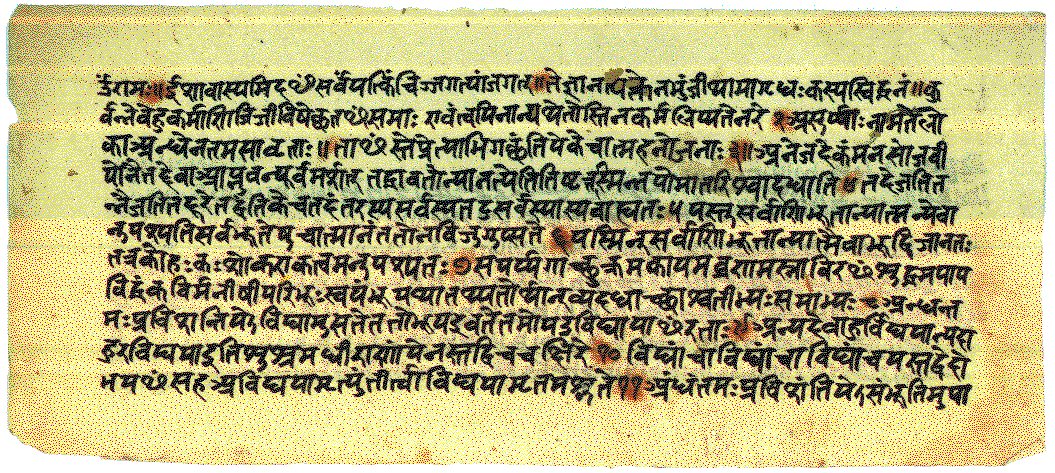 रामः॥ईशावास्यमिदꣳसर्वंयत्किंचिज्जगत्यांजगत्॥तेनत्यक्तेनभुंजीथामागृधःकस्यस्विद्धनं॥कु
र्वन्नेवेहकर्माणिजिजीविषेच्छतꣳसमाः एवंत्वयिनान्यथेतोस्तिनकर्मलिप्यतेनरे २असुर्य्याःनामतेलो
काअन्धेनतमसावृताः॥ताꣳस्तेप्रेत्याभिगच्छंतियेकेचात्महनोजनाः ३॥अनेजदेकंमनसोजवी
योनैतद्देवाआप्नुवन्पूर्वमर्शत् तद्धावतोन्यानत्येतितिष्ठत्तस्मिन्नपोमातरिश्वादधाति ४ तदेजतित
न्नैजतितद्दूरेतद्वंतिकेचतदंतरस्यसर्वस्यतदुसर्वस्यास्यबाह्यतः ५ यस्तुसर्वाणिभूतान्यात्मन्येवा
नुपश्यतिसर्वभूतेषुचात्मानंततोनविजुगुप्सते ६ यस्मिन्सर्वाणिभूतान्यात्मैवाभूद्विजानतः
तत्रकोहःकःशोकएकत्वमनुपश्यतः ७ सपर्य्यगाच्छुक्रमकायमव्रणमस्नाविरꣳशुद्धमपाप
विद्धंकविर्मनीषीपरिभूःस्वयंभूयाथातथ्यतोर्थान्व्यदधाच्छाश्वतीभ्यःसमाभ्यः ८अन्धन्त
मःप्रविशन्तियेऽविद्यामुसतेततोभूयइवतेतमोयउविद्यायाꣳरताः ९अन्यदेवाहुर्विद्ययान्यदा
हुरविद्ययाइतिशुश्रुमधीराणांयेनस्तद्विचचक्षिरे १० विद्यांचाविद्यांचाविद्यांचयस्तद्वेदो
भयꣳसहअविद्ययामृत्युंतीर्त्वाविद्ययामृतमश्नुते ११अंधंतमःप्रविशंतियेऽसंभूतिमुपा